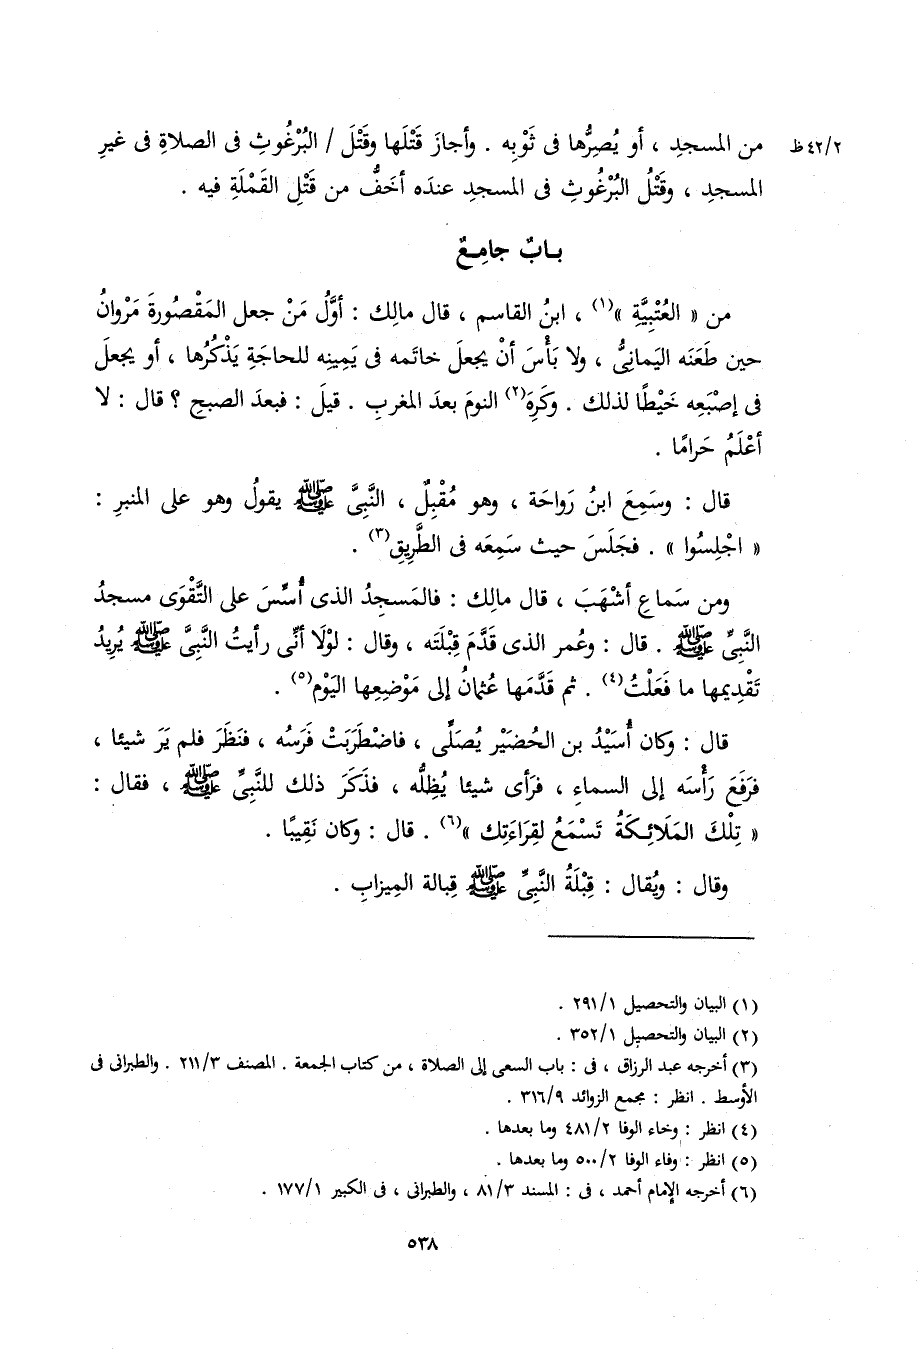 ٤٢/٢ظ من المسجدِ ، أو يُصِرُّها فى ثَوْبِه . وأجازَ قَتْلَها وقَتْلَ / البُرْغُوثِ فى الصلاةِ فى غيرِ
المسجدِ ، وقَتْلُ البُرْغُوثِ فى المسجدِ عندَه أخَفُّ من قَتْلِ القَمْلَةِ فيه .
بــابٌ جامِــعٌ
من « العُتْبِيَّةِ »(١) ، ابنُ القاسم ، قال مالِك : أوَّلُ مَنْ جعل المَقْصُورةَ مَرْوانُ
حين طَعَنَه اليَمانِىُّ ، ولا بَأْسَ أنْ يجعلَ خاتَمه فى يَمِينِه للحاجَةِ يَذْكُرُها ، أو يجعلَ
فى إصْبَعِه خَيْطًا لذلك . وكَرِهَ(٢) النومَ بعدَ المغربِ . قيلَ : فبعدَ الصبحِ ؟ قال : لا
أعْلَمُ حَرامًا .
قال : وسَمِعَ ابنُ رَواحَة ، وهو مُقْبِلٌ ، النَّبِىَّ ﷺ يقولُ وهو على المنبرِ :
« اجْلِسُوا » . فجَلَسَ حيث سَمِعَه فى الطَّرِيقِ(٣) .
ومن سَماعِ أشْهَبَ ، قال مالِك : فالمَسجِدُ الذى أُسِّسَ على التَّقْوَى مسجدُ
النَّبِىِّ ﷺ . قال : وعُمر الذى قَدَّمَ قِبْلَتَه ، وقال : لوْلَا أنِّى رأيتُ النَّبِىَّ ﷺ يُرِيدُ
تَقْدِيمها ما فَعَلْتُ(٤) . ثم قَدَّمَها عُثمانُ إلى مَوْضِعِها اليَوْم(٥) .
قال : وكان أُسَيْدُ بن الحُضَيْر يُصَلِّى ، فاضْطَرَبَتْ فَرَسُه ، فنَظَرَ فلم يَرَ شيئا ،
فرَفَعَ رَأْسَه إلى السماءِ ، فرَأى شيئا يُظِلُّه ، فذَكَرَ ذلك للنَّبِىِّ ﷺ ، فقال :
« تِلْكَ المَلَائِــكَةُ تَسْمَعُ لقِرَاءَتِك »(٦) . قال : وكان نَقِيبًا .
وقال : ويُقال : قِبْلَةُ النَّبِىِّ ﷺ قِبالة المِيزابِ .
(١) البيان والتحصيل ٢٩١/١ .
(٢) البيان والتحصيل ٣٥٢/١ .
(٣) أخرجه عبد الرزاق ، فى : باب السعى إلى الصلاة ، من كتاب الجمعة . المصنف ٢١١/٣ . والطبرانى فى
الأوسط . انظر : مجمع الزوائد ٣١٦/٩ .
(٤) انظر : وخاء الوفا ٤٨١/٢ وما بعدها .
(٥) انظر : وفاء الوفا ٥٠٠/٢ وما بعدها .
(٦) أخرجه الإمام أحمد ، فى : المسند ٨١/٣ ، والطبرانى ، فى الكبير ١٧٧/١ .
٥٣٨